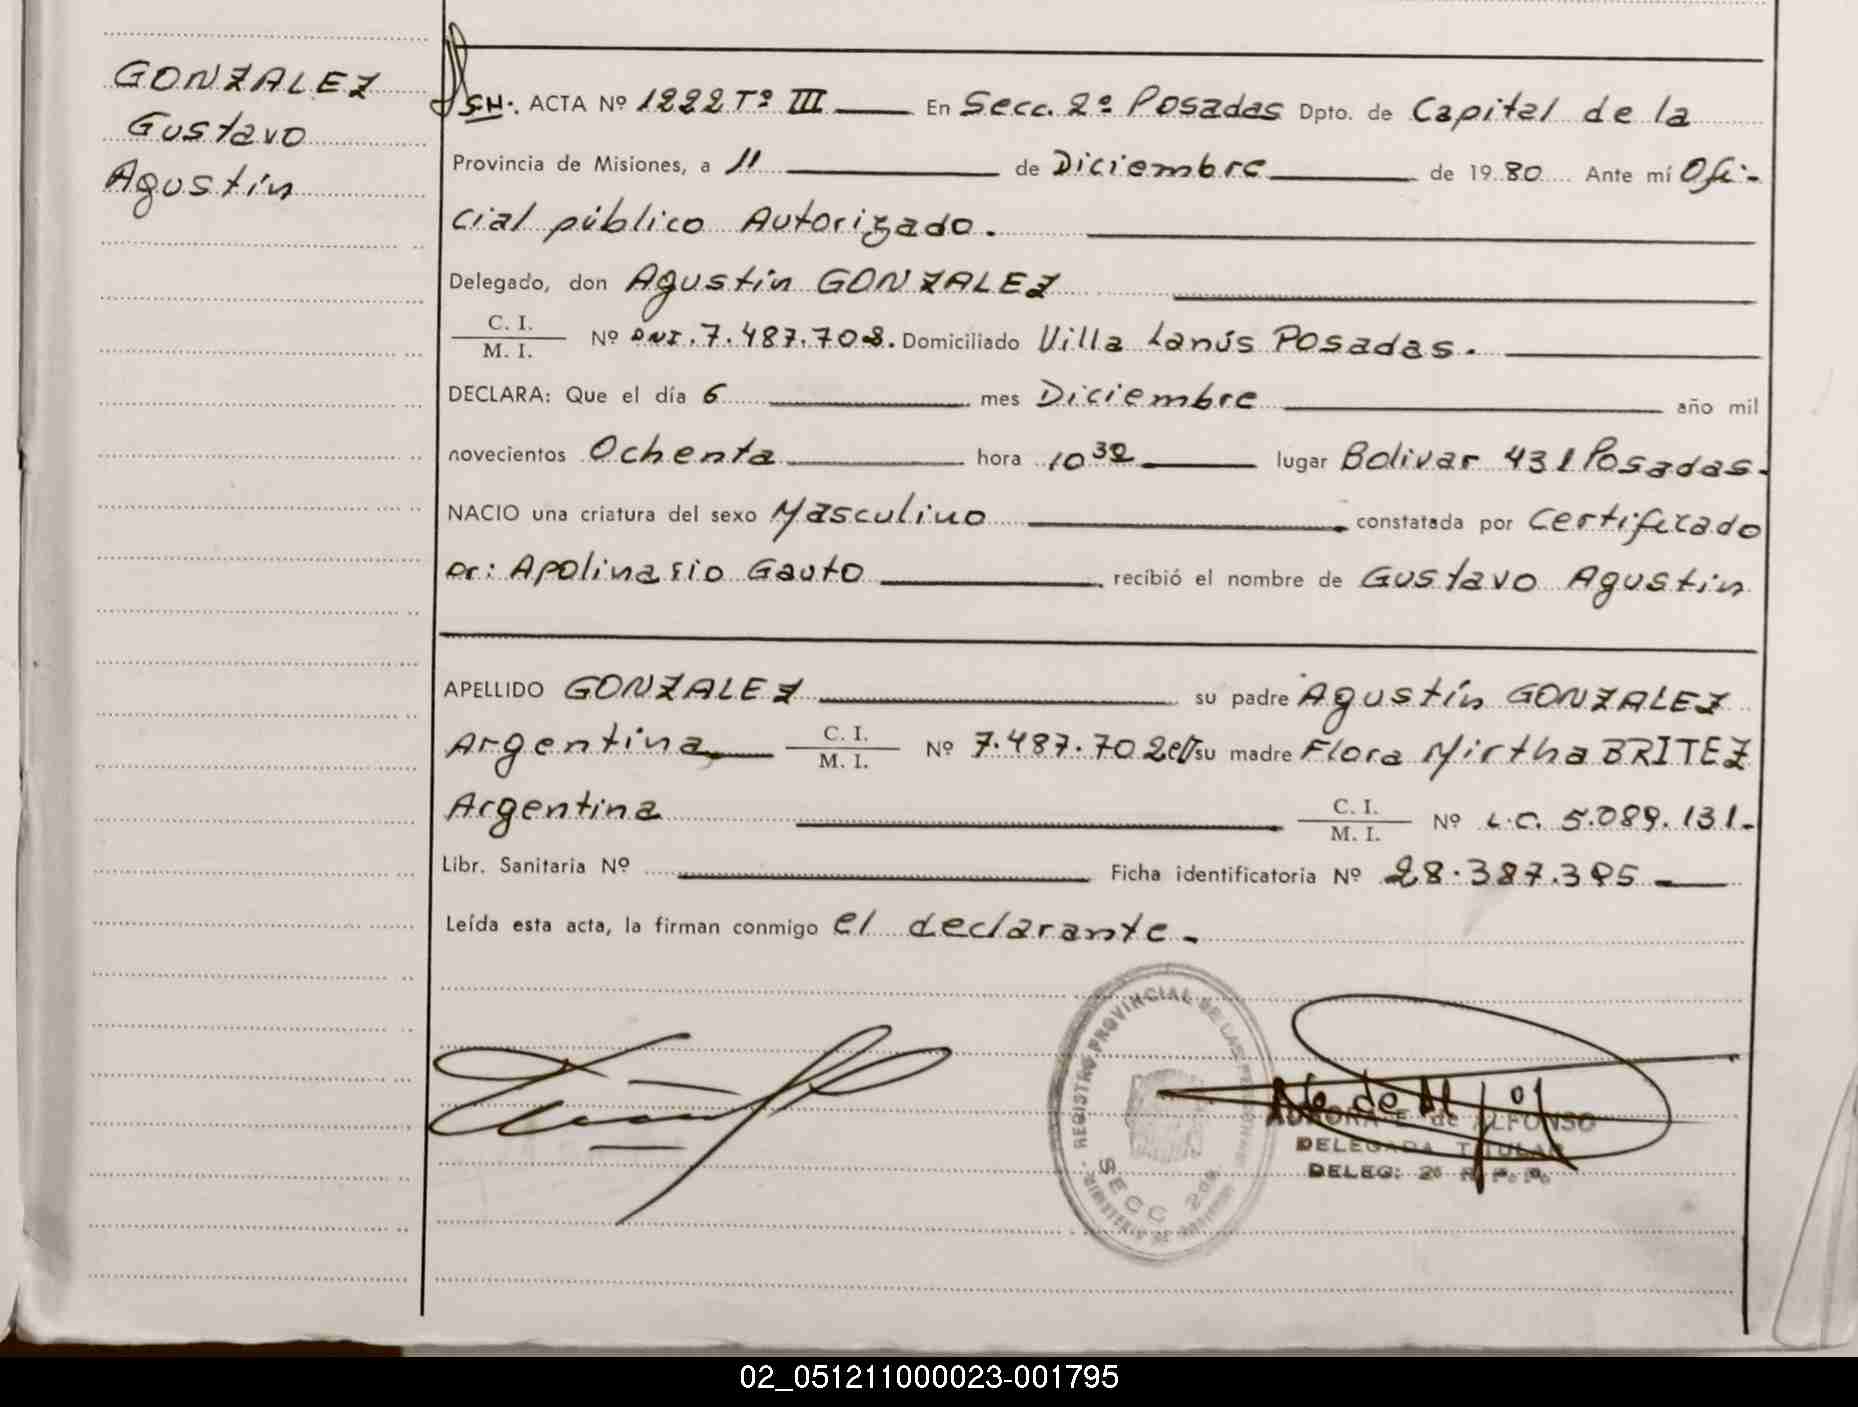 GONZALEZ
Gustavo
Agustín
SN. ACTA Nº 1222 Tº III En Secc. 2º Posadas Dpto. de Capital de la
Provincia de Misiones, a 11 de Diciembre de 1980 Ante mí Ofi-
cial público Autorizado.
Delegado, don Agustín GONZALEZ
C. I.
M. I. Nº DNI. 7.487.702. Domiciliado Villa Lanús Posadas.
DECLARA: Que el día 6 mes Diciembre año mil
novecientos Ochenta hora 10 32 lugar Bolivar 431 Posadas.
NACIO una criatura del sexo Masculino constatada por Certificado
Dr: Apolinario Gauto recibió el nombre de Gustavo Agustín
APELLIDO GONZALEZ su padre Agustín GONZALEZ
Argentina C. I.
M. I. Nº 7.487.702 su madre Flora Mirtha BRITEZ
Argentina C. I.
M. I. Nº L.C. 5.089.131.
Libr. Sanitaria Nº Ficha identificatoria Nº 28.387.395
Leída esta acta, la firman conmigo el declarante.
REGISTRO PROVINCIAL DE LAS PERSONAS
SECC 2da.
MINISTERIO DE GOBIERNO
AURORA E. de ALFONSO
DELEGADA TITULAR
DELEG: 2ª R. P. P.
02_051211000023-001795